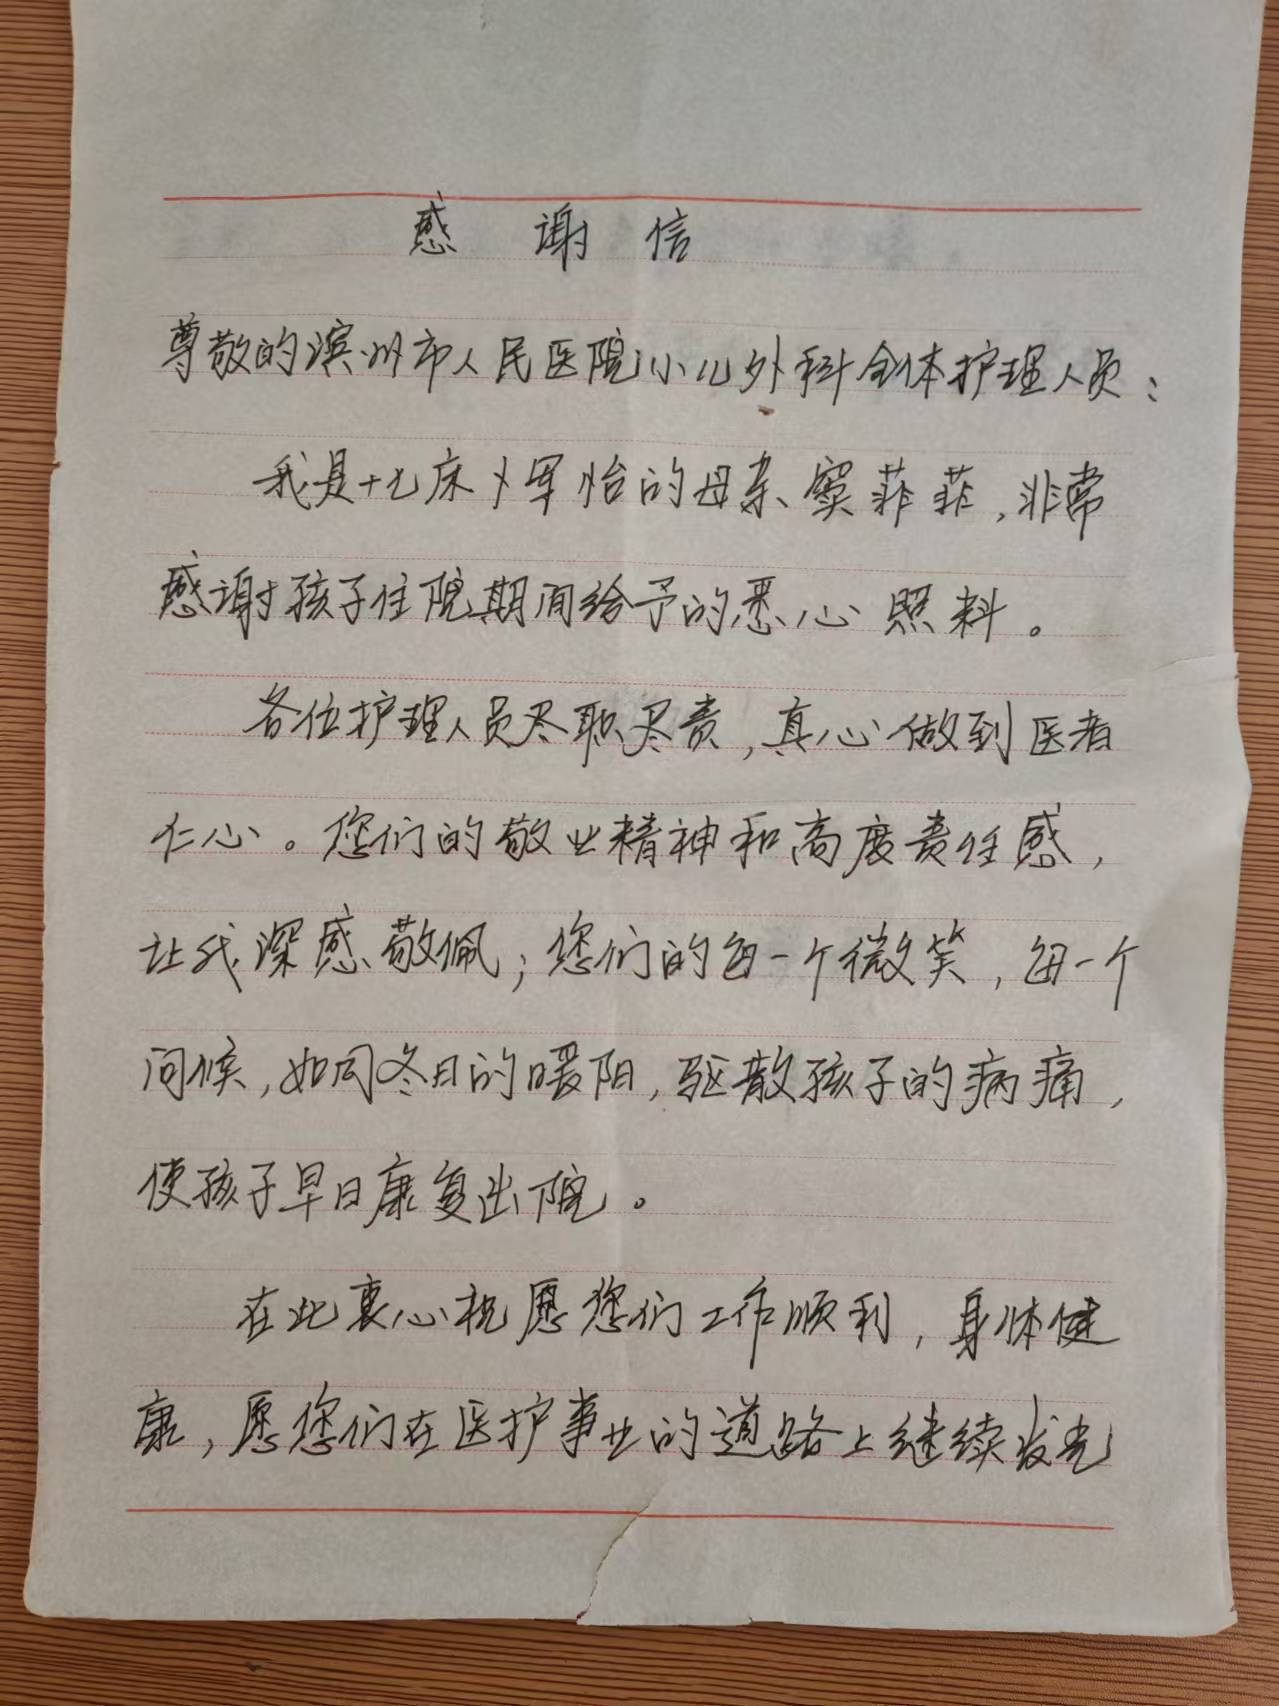 感谢信
尊敬的滨州市人民医院小儿外科全体护理人员：
我是十七床 军怡的母亲窦菲菲，非常
感谢孩子住院期间给予的悉心照料。
各位护理人员尽职尽责，真心做到医者
仁心。您们的敬业精神和高度责任感，
让我深感敬佩；您们的每一个微笑，每一个
问候，如同冬日的暖阳，驱散孩子的病痛，
使孩子早日康复出院。
在此衷心祝愿您们工作顺利，身体健
康，愿您们在医护事业的道路上继续发光